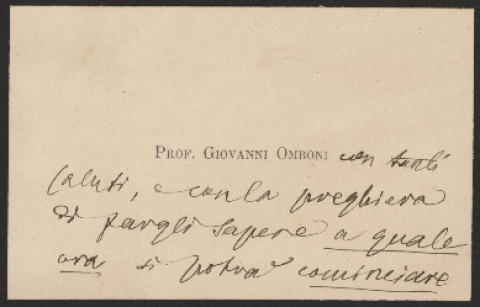 Prof. Giovanni Omboni con tanti
saluti, e con la preghiera
di fargli sapere a quale
ora si potrà cominciare